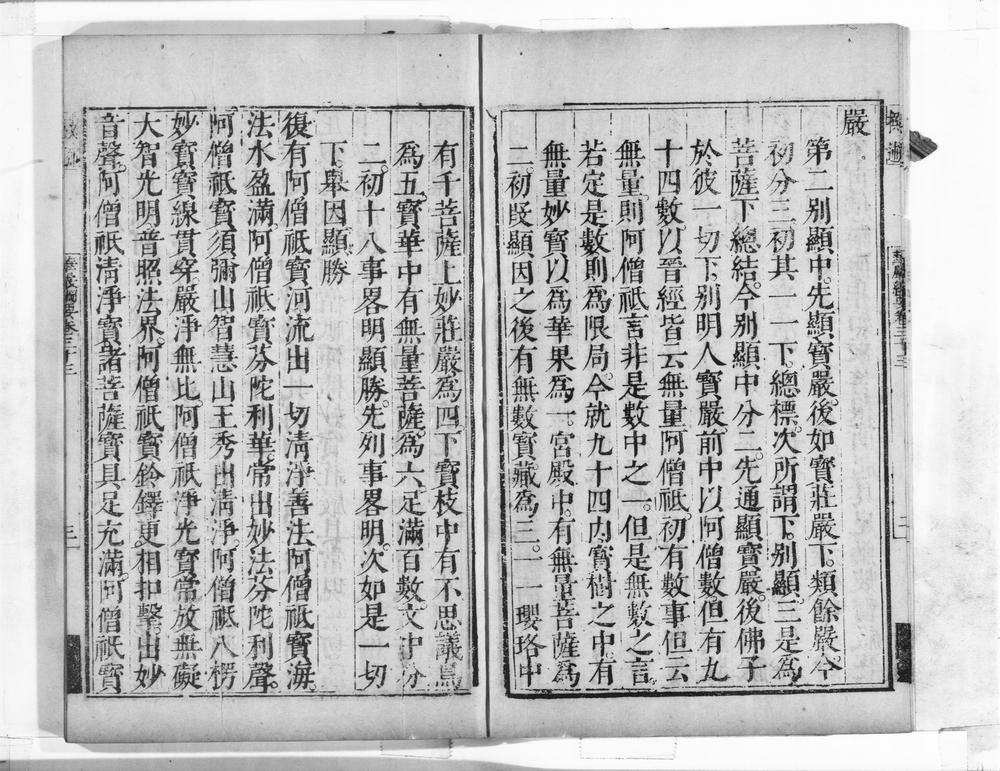 嚴
第二別顯中先顯寶嚴後如寶莊嚴下類餘嚴今
初分三初其一一下總標次所謂下別顯三是為
菩薩下總結今別顯中分二先通顯寶嚴後佛子
於彼一切下別明人寶嚴前中以阿僧數但有九
十四數以晉經皆云無量阿僧祇初有數事但云
無量則阿僧祇言非是數中之一但是無數之言
若定是數則為限局今就九十四內寶樹之中有
無量妙寶以為華果為一宮殿中有無量菩薩為
二初叚顯因之後有無數寶藏為三一一瓔珞中
有千菩薩上妙莊嚴為四下寶枝中有不思議鳥
為五寶華中有無量菩薩為六足滿百數文中分
二初十八事畧明顯勝先列事畧明次如是一切
下舉因顯勝
復有阿僧祇寶河流出一切清淨善法阿僧祇寶海
法水盈滿阿僧祇寶芬陀利華常出妙法芬陀利聲
阿僧祇寶須彌山智慧山王秀出清淨阿僧祇八楞
妙寶寶線貫穿嚴淨無比阿僧祇淨光寶常放無礙
大智光明普照法界阿僧祇寶鈴鐸更相扣擊出妙
音聲阿僧祇清淨寶諸菩薩寶具足充滿阿僧祇寶
華嚴綱要卷三十三
三